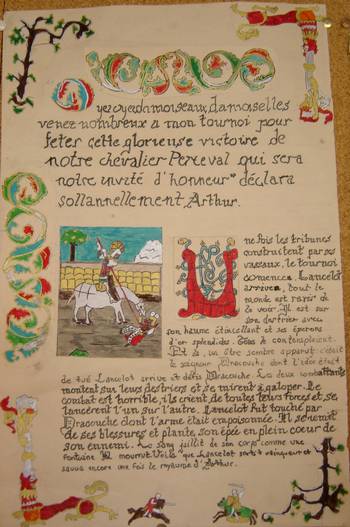 Oyez oyez damoiseaux, damoiselles
venez nombreux a mon tournoi pour
feter cette glorieuse victoire de
notre chevalier Perceval qui sera
notre invité d'honneur" déclara
sollannellement Arthur.
Une fois les tribunes
construitent par ses
vassaux, le tournoi
comença. Lancelot
arriva, tout le
monde est ravis de
le voir. Il est sur
son destrier avec
son haume étincellant et ses éperons
d'or splendides. Tous le contemplaient.
Et là, un être sombre apparut c'était
le seigneur Dracouche dont l'idée était
de tué Lancelot arriva et défia Dracouche. Les deux combattants
montent sur leurs destriers et se mirent à galoper. Le
combat est horrible, ils crient de toutes leurs forces et se
lancèrent l'un sur l'autre. Lancelot fut touché par
Dracouche dont l'arme était empoisonnée. Il se remit
de ses blessures et planta son épée en plein coeur de
son ennemi. Le sang jaillit de son corps comme une
fontaine. Il mourrut. Voilà que Lancelot sortit vainqueur et
sauva encore une fois le royaume d'Arthur.